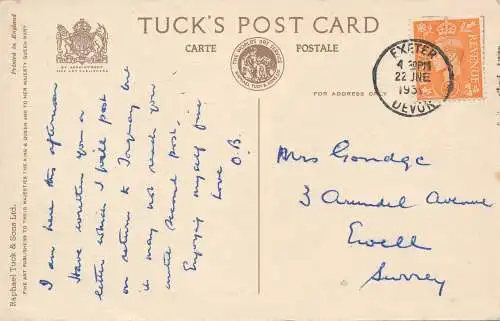 TUCK'S POST CARD
CARTE POSTALE
Printed in England
BY APPOINTMENT
FOR ADDRESS ONLY
Raphael Tuck & Sons Ltd.
FINE ART PUBLISHERS TO THEIR MAJESTIES THE KING & QUEEN AND TO HER MAJESTY QUEEN MARY
THE WORLD'S ART SERVICE
RAPHAEL TUCK & SONS
I am here this afternoon
Have written you a
letter which I will post
on return to Torquay but
it may not reach you
until second post.
Enjoying myself fine
Love
O.B.
EXETER
4 30PM
22 JNE
195
DEVON
REVENUE
Mrs Gondge
3 Arundel Avenue
Ewell
Surrey